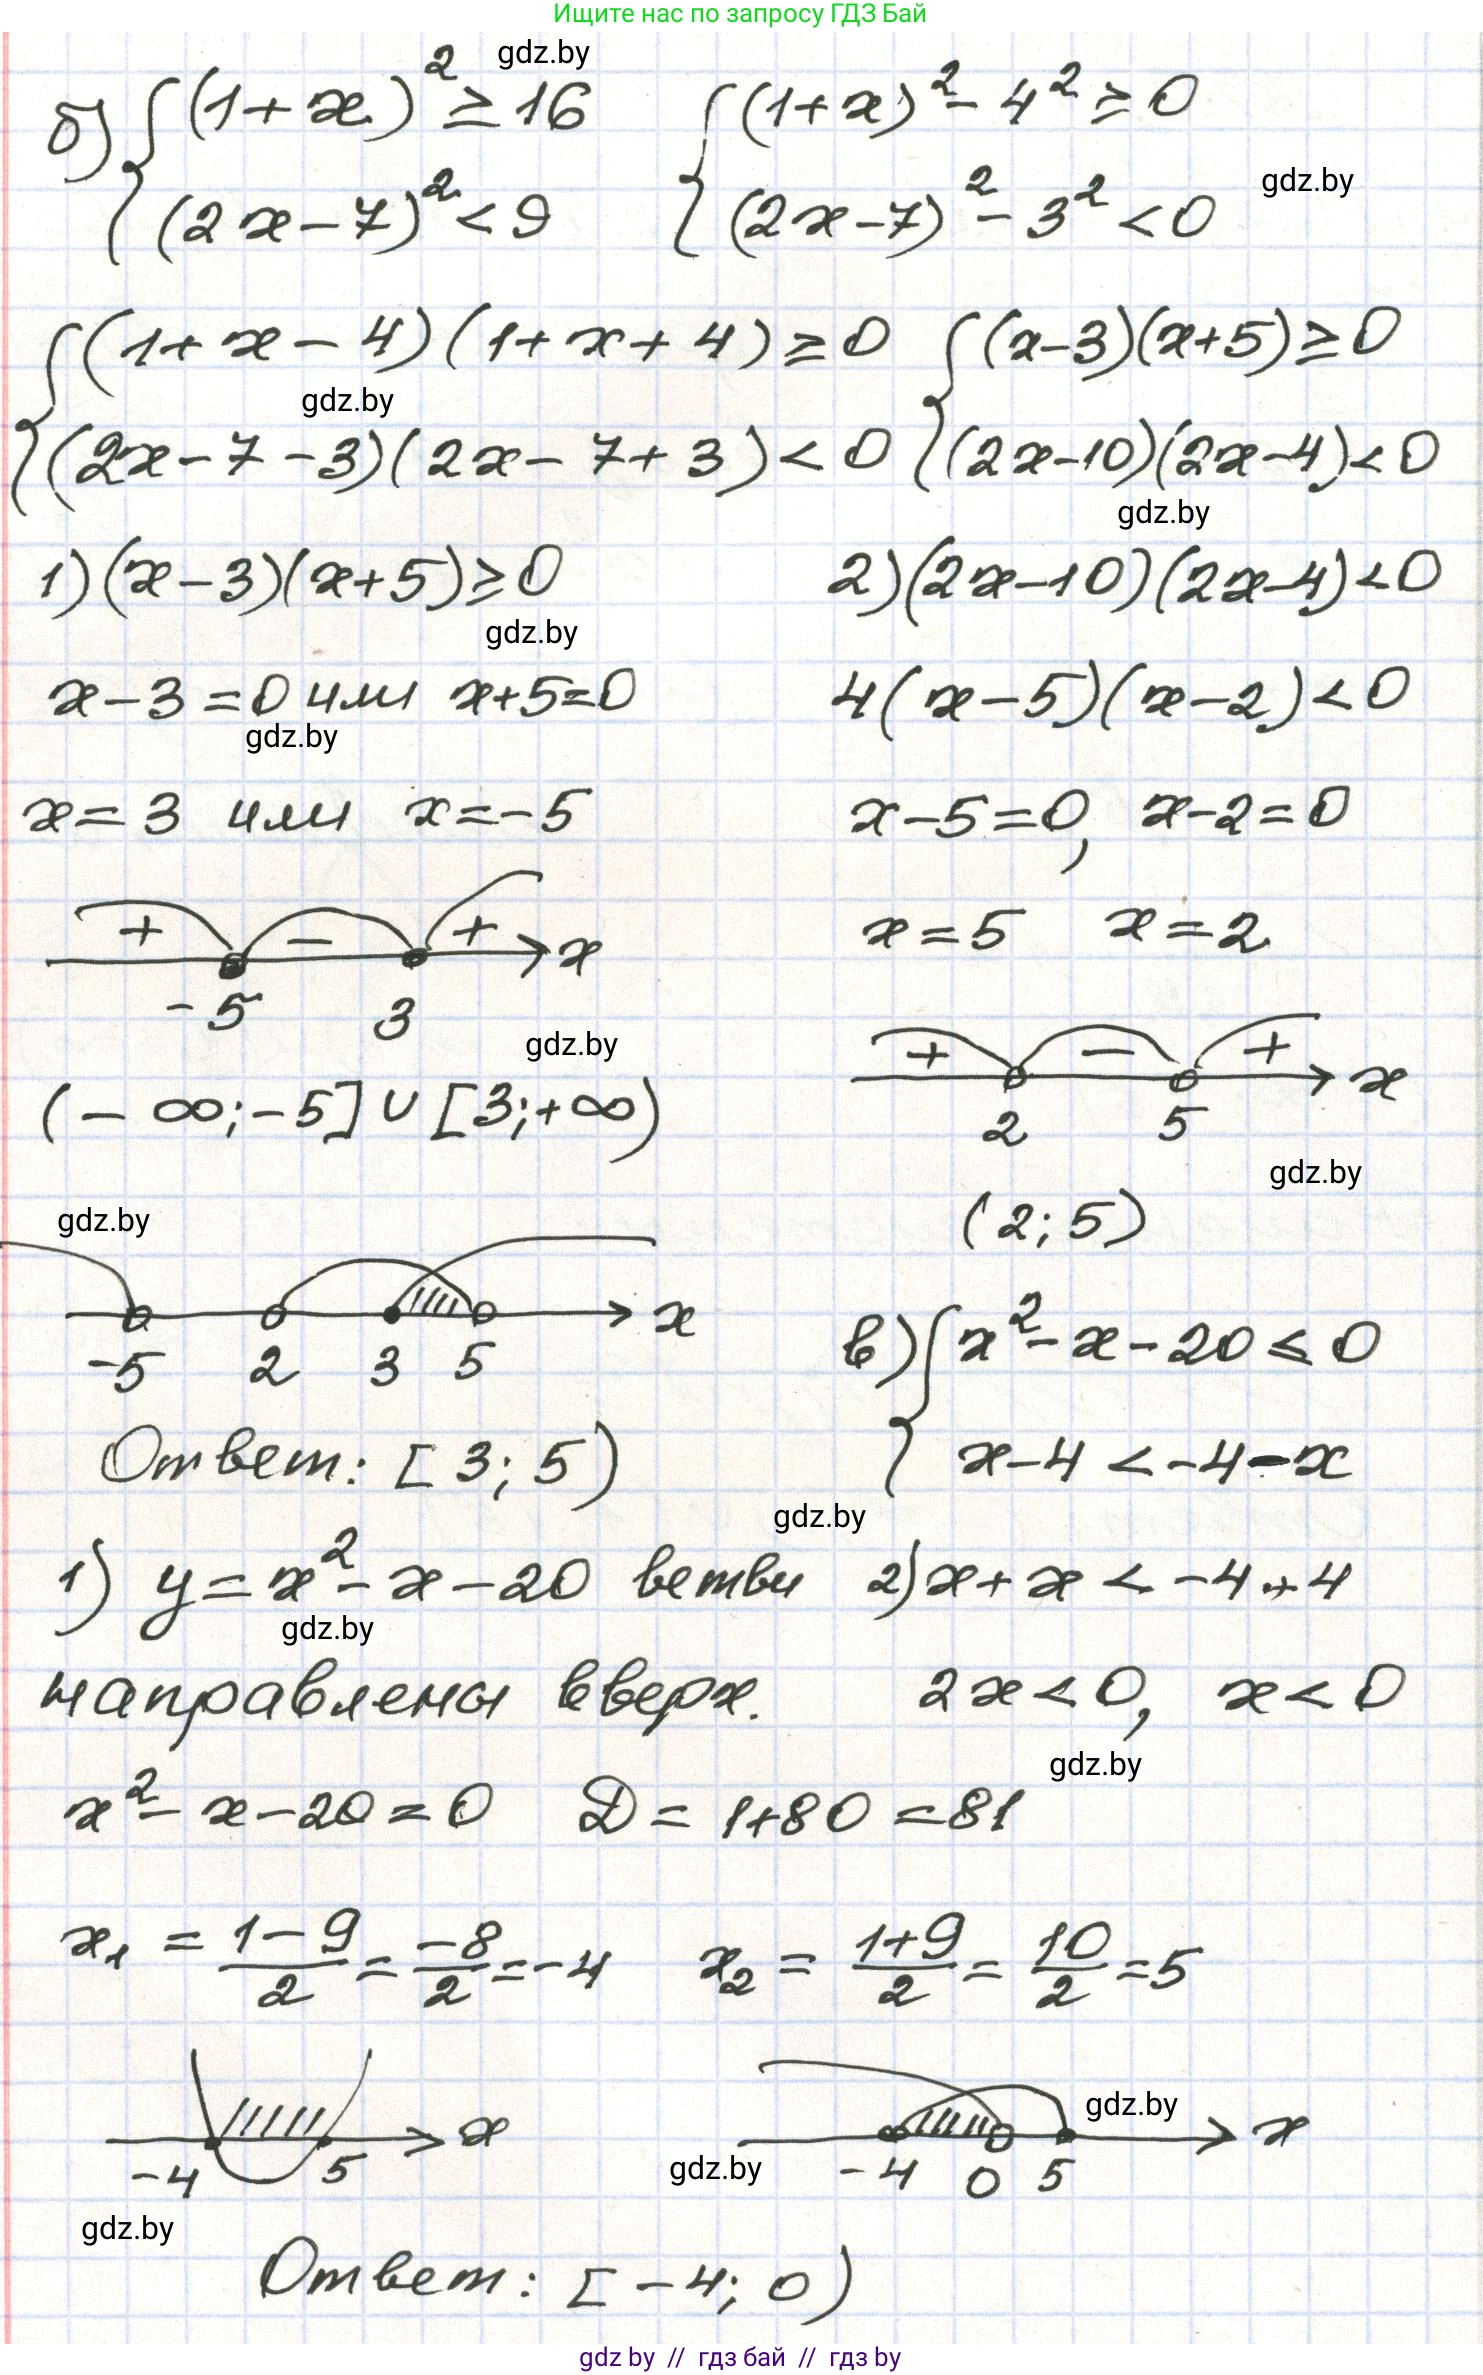 Ищите нас по запросу ГДЗ Бай
gdz.by
б) { (1+x)² ≥ 16 { (1+x)² - 4² ≥ 0
gdz.by
(2x-7)² < 9 (2x-7)² - 3² < 0
{ (1+x-4)(1+x+4) ≥ 0 { (x-3)(x+5) ≥ 0
gdz.by
(2x-7-3)(2x-7+3) < 0 (2x-10)(2x-4) < 0
gdz.by
1) (x-3)(x+5) ≥ 0
gdz.by
x-3=0 или x+5=0
gdz.by
x=3 или x=-5
+ - + x
-5 3
gdz.by
(-∞; -5] ∪ [3; +∞)
2) (2x-10)(2x-4) < 0
4(x-5)(x-2) < 0
x-5=0, x-2=0
x=5 x=2
+ - + x
2 5
gdz.by
(2; 5)
gdz.by
x
-5 2 3 5
Ответ: [3; 5)
в) { x²-x-20 ≤ 0
x-4 < -4-x
gdz.by
1) y=x²-x-20 ветви
gdz.by
направлены вверх.
2) x+x < -4+4
2x<0, x<0
gdz.by
x²-x-20=0 D=1+80=81
x₁ = (1-9)/2 = -8/2 = -4 x₂ = (1+9)/2 = 10/2 = 5
x
-4 5
gdz.by
x
gdz.by
-4 0 5
gdz.by
Ответ: [-4; 0)
gdz.by // гдз бай // гдз by